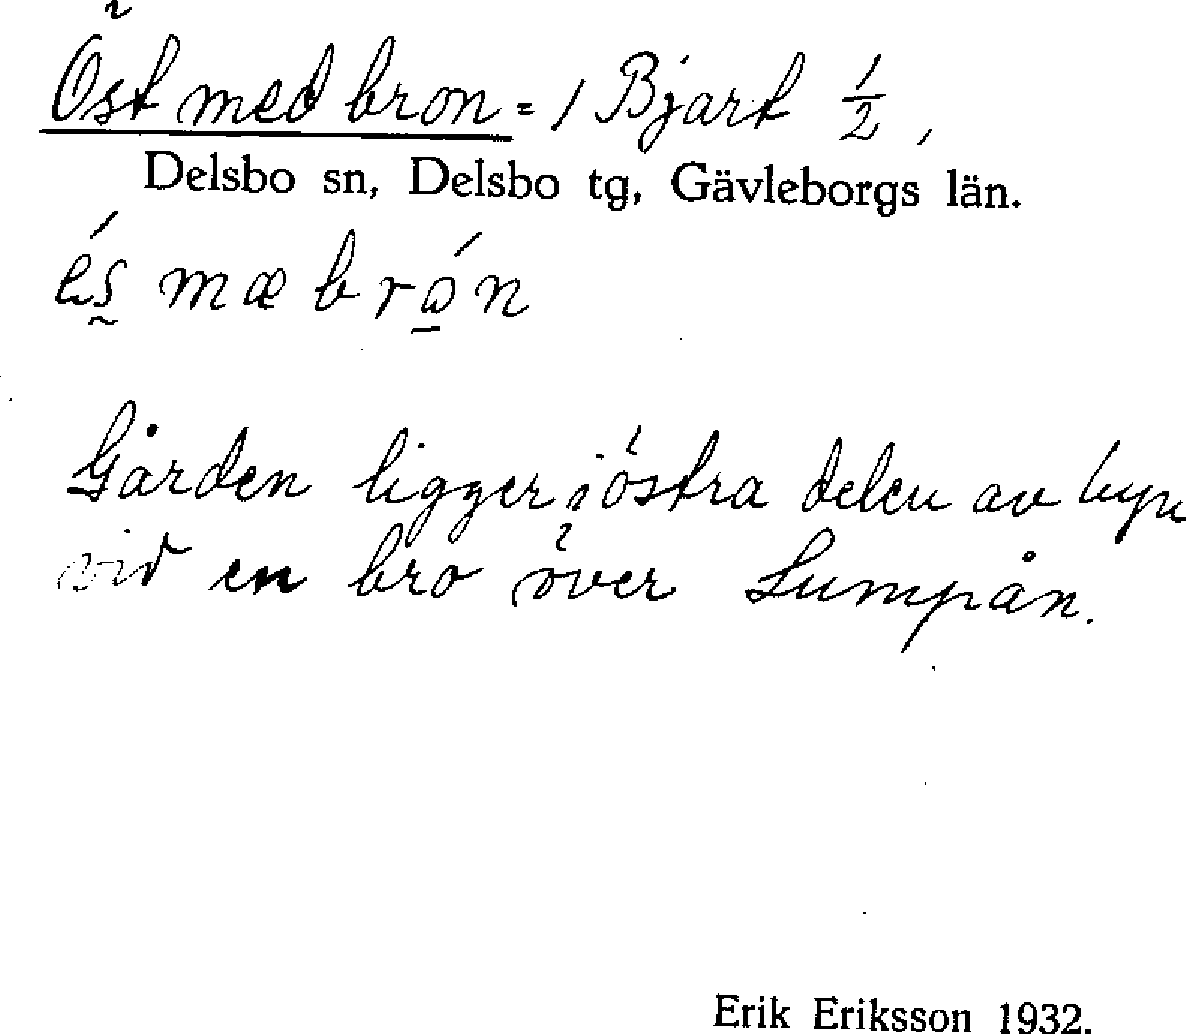 Öst med bron = 1 Bjart 1/2,
Delsbo sn, Delsbo tg, Gävleborgs län.
mæ brón
Gården ligger i östra delen av byn
vid en bro över Lumpån.
Erik Eriksson 1932.